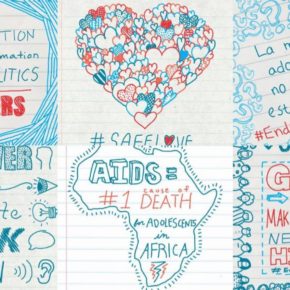 TION
mation
LITICS
RS
#SAFELOVE
La m
ado
no
es
#End
WER
te
K
N
AIDS =
#1 cause of DEATH
for ADOLESCENTS
in
AFRICA
G
MAK
NE
H
#E